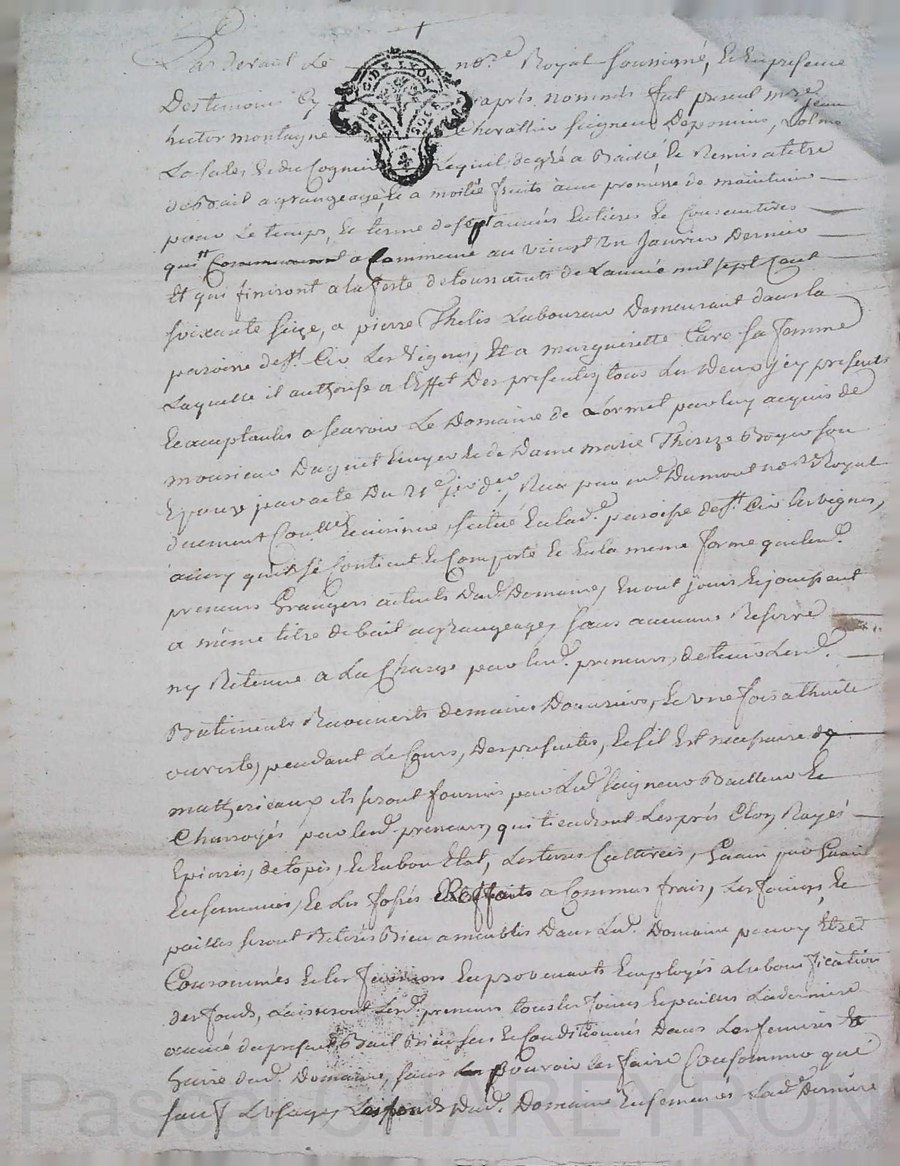 Par devant Le nore Royal soussigné, et en presence
Des temoins cy apres nommés fut present mre jean
hector montagne
La sales et du Cognet Lequel de gré a Baillé et Remis a titre
de Bail a grangeage et a moitié fruits avec promesse de maintenir
pour Le temps, et terme de sept années Entieres et Consecutives
qui ont Commencé au vingt un Janvier Dernier
Et qui finiront a la feste de toussaints de L'année mil sept Cent
soixante seize, a pierre Thelis Laboureur Demeurant dans la
paroisse de st. Cir Les vignes, Et a margueritte Caire sa femme
Laquelle il authorise a l'Effet Des presentes, tous Les Deux jcy presents
Et acceptants a scavoir Le Domaine de Lormet par luy acquis de
monsieur Daguet Ecuyer et de Dame marie Therese Boyer son
Epouse par acte Du 21e jer der, Recu par me Dumont nore Royal
duement Coullé Et insinué, scitué En lad. paroisse de st. Cir les vignes,
ainsy qu'il se contient et Comporte et En la meme forme que lesd.
preneurs Grangers actuels Dud. Domaine, En ont joui et jouissent
a même titre de bail a grangeage, sans aucune Reserve
ny Retenue a La Charge par lesd. preneurs, de tenir Lesd.
Batiments Recouverts de mains D'ouvriers, Et une fois a thuile
ouverte, pendant Le Cours, Des presentes, Et s'il Est necessaire de
mathereaux ils seront fournis par Led. seigneur Bailleur Et
Charroyés par lesd. preneurs, qui tiendront Les prés Clos, Rayés
Epierés, detopés, Et En bon Etat, Les terres Cultivées, Grain pour Grain
Ensemencées, Et Les fossés Reffaits a Communs frais, Les foins, Et
pailles seront Retirés Bien a meublés Dans Led. Domaine pour y Etre
Consommés Et les fumiers En provenants Employés a la bonification
des fonds, Laisseront Lesd. preneurs tous les foins Et pailles La derniere
année du present Bail Bien secs Et Conditionnés Dans Les fenieres Et
Gaire dud. Domaine, sans Pouvoir les faire Consommer que
sauf L'usage, Les fonds Dud. Domaine Ensemencés Lad. Derniere
G. DE LYON
Pascal CHAREYRON